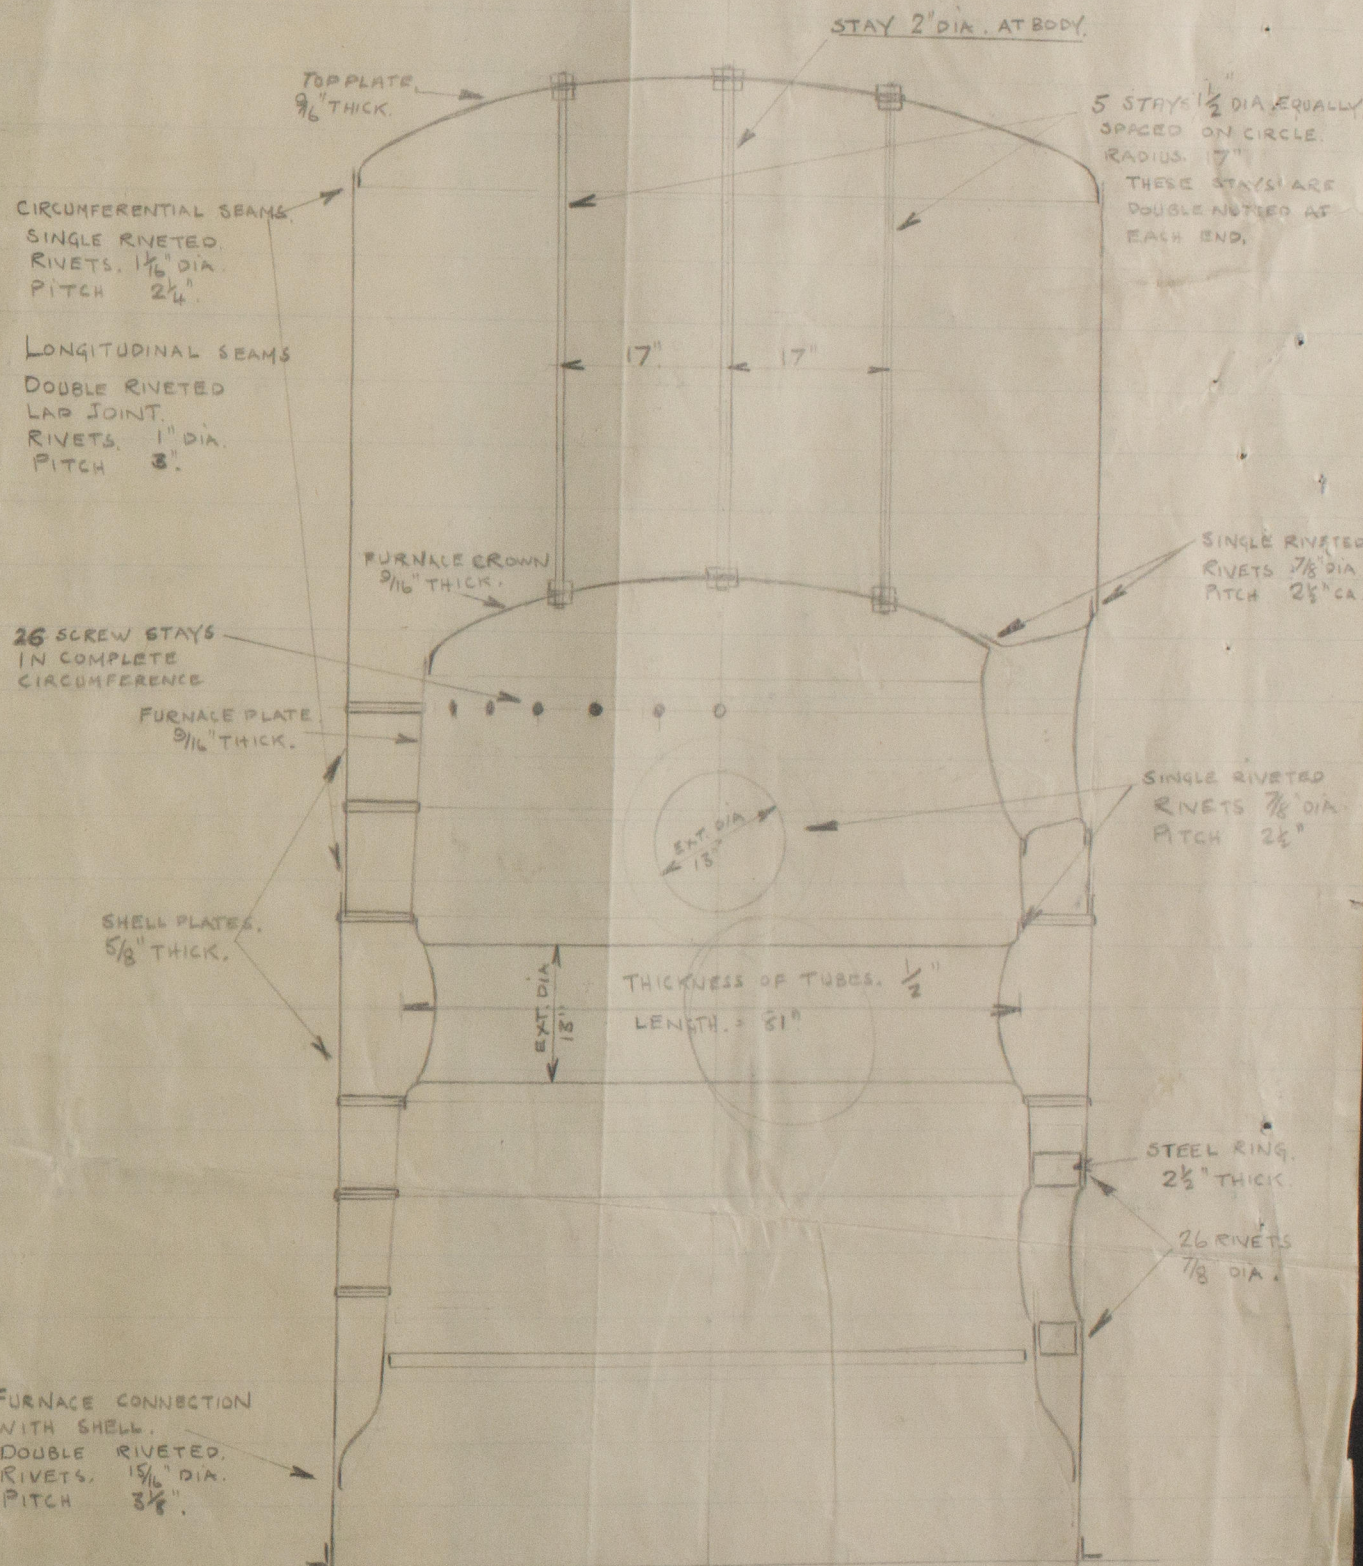 STAY 2" DIA. AT BODY.
TOP PLATE.
9/16" THICK.
5 STAYS 1½" DIA EQUALLY
SPACED ON CIRCLE.
RADIUS. 17"
THESE STAYS ARE
DOUBLE NUTTED AT
EACH END.
CIRCUMFERENTIAL SEAMS.
SINGLE RIVETED.
RIVETS. 1 1/16" DIA.
PITCH 2¼".
LONGITUDINAL SEAMS
DOUBLE RIVETED
LAP JOINT.
RIVETS. 1" DIA.
PITCH 3".
17" 17"
FURNACE CROWN
9/16" THICK.
SINGLE RIVETED
RIVETS 7/8" DIA
PITCH
26 SCREW STAYS
IN COMPLETE
CIRCUMFERENCE
FURNACE PLATE
9/16" THICK.
SINGLE RIVETED
RIVETS 7/8" DIA
PITCH
EXT. DIA
13"
SHELL PLATES.
5/8" THICK.
EXT. DIA
13"
THICKNESS OF TUBES. ½"
LENGTH. =
STEEL RING.
2½" THICK.
26 RIVETS
7/8 DIA.
FURNACE CONNECTION
WITH SHELL.
DOUBLE RIVETED.
RIVETS. 15/16" DIA.
PITCH 3⅛".